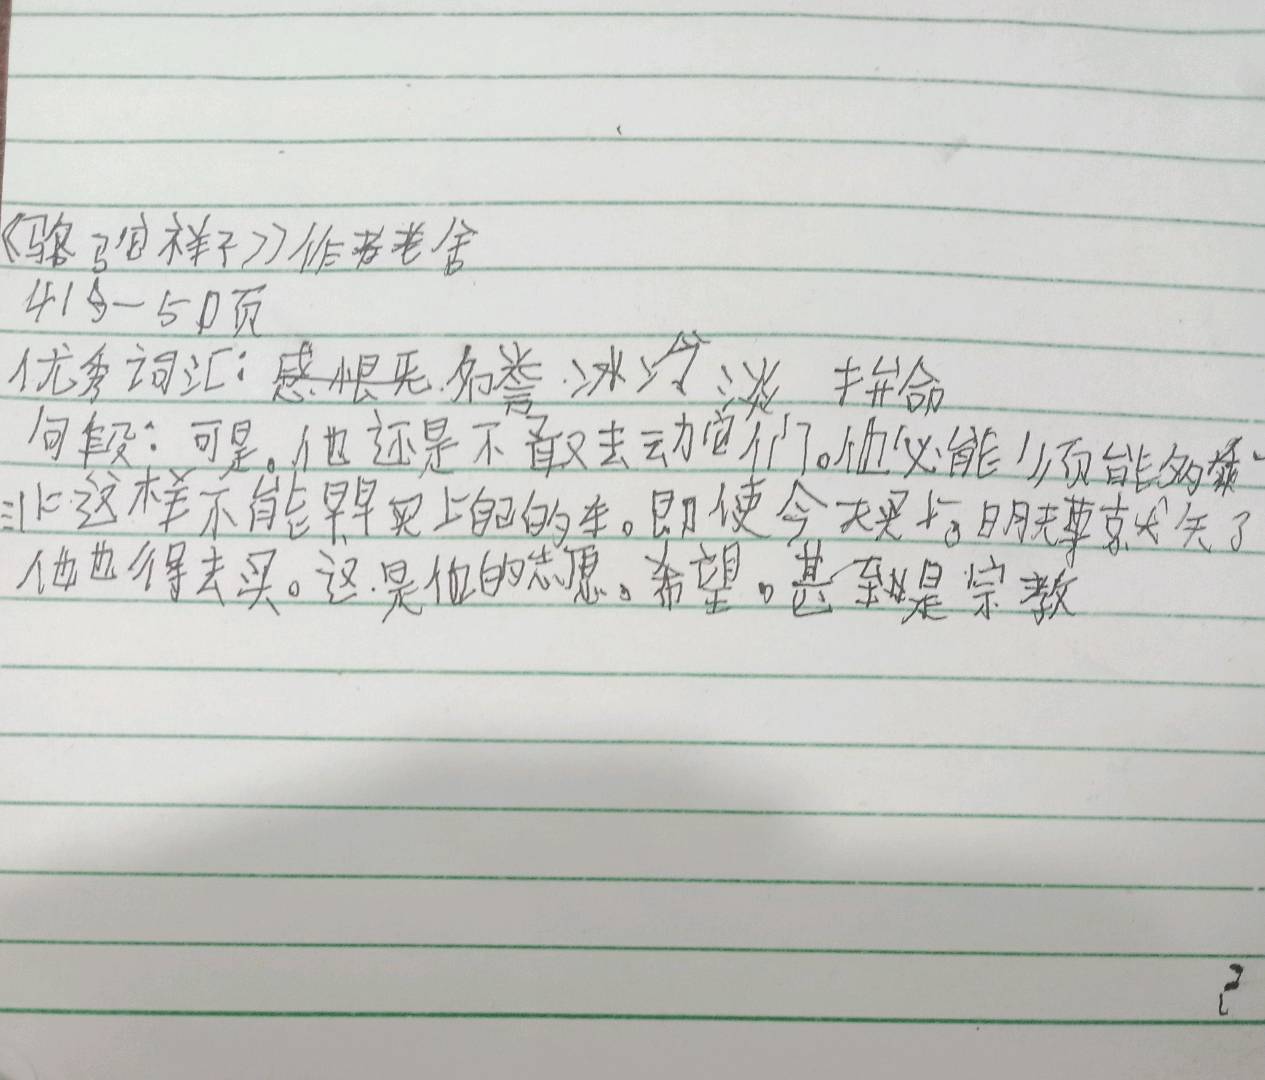 《骆驼祥子》作者老舍
418-50页
优秀词汇：感恨无 名誉 冰冷 淡 拼命
句段：可是。他还是不敢去动它们。他必能须能多
这样不能早早买上自己的车。即使今天买上。明天丢失了
他也得去买。这是他的志愿。希望。甚至是宗教
2